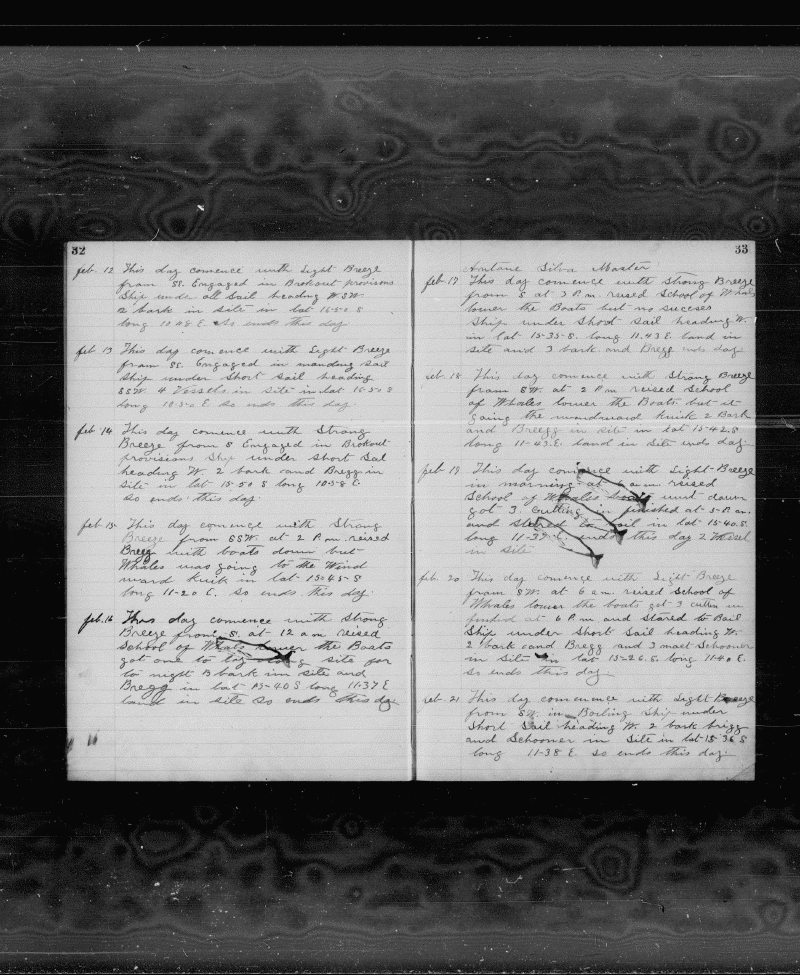 32
feb. 12 This day comence with Light Breeze
from SE. Engaged in Brokout provisons
Ship under all Sail heading W.SW
2 bark in site in lat 15-50 S
long 10-48 E. So ends this day
feb. 13 This day comence with Light Breeze
from SE. Engaged in mending Sail
Ship under Short Sail heading
SSW. 4 Vessels in site in lat 16-50 S
long 10-50 E so ends this day.
feb. 14 This day comence with Strong
Breeze from S Engaged in Brokout
provisions Ship under Short Sal
heading W. 2 bark and Bregg in
Site in lat 15-50 S long 10-58 E.
so ends this day.
feb. 15 This day comence with Strong
Breeze from SSW. at 2 P.m. reised
Bregg with boats down but
Whales was going to the Wind
ward knik in lat 15-45-S
long 11-20 E. so ends this day.
feb. 16 This day comence with Strong
Breeze from S. at 12 a m reised
School of Whals lower the Boats
got one to lay long site for
to night 3 bark in site and
Bregg in lat 15-40 S long 11-37 E
land in site So ends this day
33
Antone Silva Master
feb. 17 This day comence with Strong Breeze
from S at 3 P.m. reised School of Whals
lower the Boats but no succes
Ship under Shot sail heading W.
in lat 15-35-S. long 11.43 E. land in
site and 3 bark and Bregg ends day
feb. 18. This day comence with Strong Breeze
from SW. at 2 P m reised School
of Whales lower the Boats but it
going the windward knik 2 Bark
and Breegg in site in lat 15-42.S
long 11-43.E. land in site ends day.
feb. 19 This day comence with Light Breeze
in morning at 6 a m reised
School of Whales Boats went down
got 3. Cutting in finished at 5-P.m.
and stared to Boil in lat 15-40.S.
long 11-39 E. ends this day 2 Vessel
in site
feb. 20 This day comence with Light Breeze
from SW. at 6 a m. reised School of
Whales lower the boats got 3 cutten in
finshed at 6 P m and stared to Boil
Ship under Short Sail heading W.
2 bark and Bregg and 3 mast Schooner
in Site in lat 15-26.S. long 11-40 E.
so ends this day
feb. 21 This day comence with Light Breeze
from SW in Boiling Ship under
Short Sail heading W. 2 bark brigg
and Schooner in Site in lat 15-36 S
long 11-38 E. so ends this day.